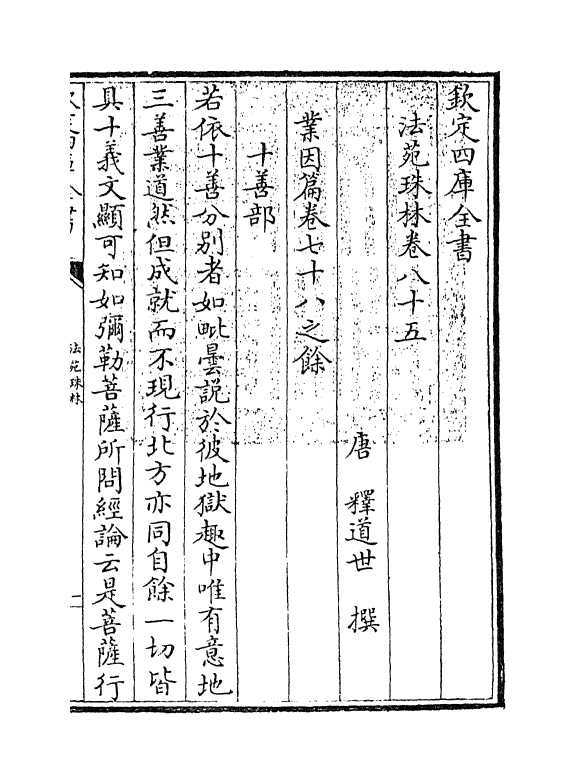 欽定四庫全書
法苑珠林卷八十五
唐 釋道世 撰
業因篇卷七十八之餘
十善部
若依十善分别者如毗曇説於彼地獄趣中唯有意地
三善業道然但成就而不現行北方亦同自餘一切皆
具十義文顯可知如彌勒菩薩所問經論云是菩薩行
法苑珠林